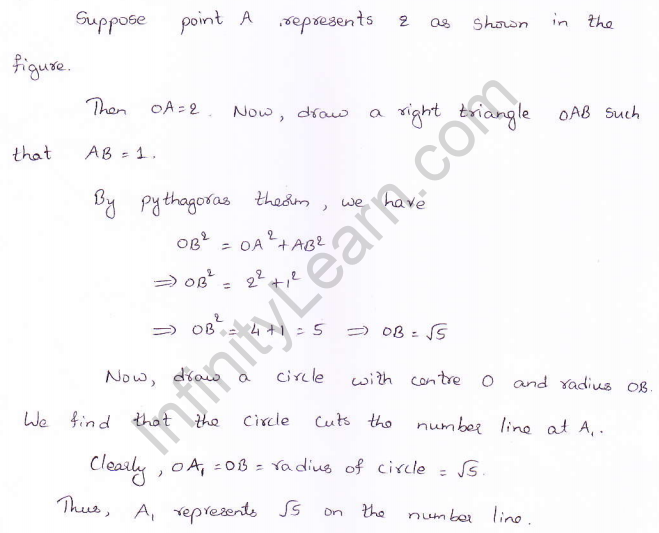 Suppose point A represents 2 as shown in the
figure.
Then OA=2. Now, draw a right triangle OAB such
that AB = 1.
By pythagoras theorm, we have
OB² = OA² + AB²
⇒ OB² = 2² + 1²
⇒ OB² = 4+1 = 5 ⇒ OB = √5
Now, draw a circle with centre O and radius OB.
We find that the circle cuts the number line at A₁.
Clearly, OA₁ = OB = radius of circle = √5.
Thus, A₁ represents √5 on the number line.
InfinityLearn.com